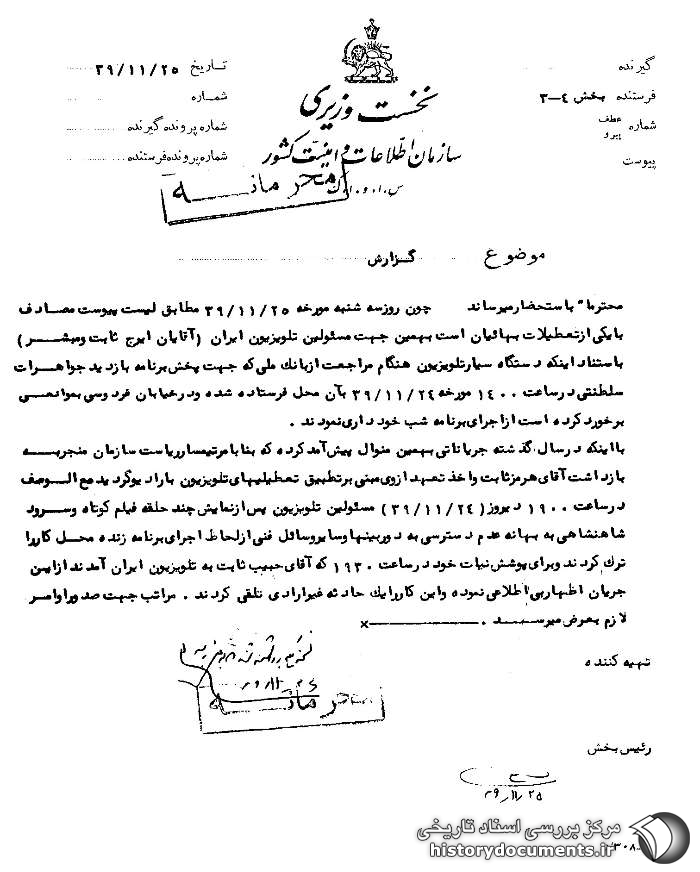 گیرنده
فرستنده بخش ٤–٣
شماره عطف
پیرو
پیوست
نخست وزیری
سازمان اطلاعات و امنیت کشور
س.ا.و.ا.ک
تاریخ ٣٩/١١/٢٥
شماره
شماره پرونده گیرنده
شماره پرونده فرستنده
محرمانه
موضوع گزارش
محترما" باستحضار میرساند چون روز سه شنبه مورخه ٣٩/١١/٢٥ مطابق لیست پیوست مصادف
با یکی از تعطیلات بهائیان است بهمین جهت مسئولین تلویزیون ایران (آقایان ایرج ثابت ومبشر)
باستناد اینکه دستگاه سیار تلویزیون هنگام مراجعت از بانک ملی که جهت پخش برنامه بازدید جواهرات
سلطنتی در ساعت ١٤٠٠ مورخه ٣٩/١١/٢٤ بآن محل فرستاده شده ودر خیابان فردوسی بموانعی
برخورد کرده است از اجرای برنامه شب خودداری نمودند .
با اینکه در سال گذشته جریاناتی بهمین منوال پیش آمد کرده که بنا بامر تیمسار ریاست سازمان منجر به
بازداشت آقای هرمز ثابت واخذ تعهد از وی مبنی بر تطبیق تعطیلیهای تلویزیون با رادیو گردید مع الوصف
در ساعت ١٩٠٠ دیروز (٣٩/١١/٢٤) مسئولین تلویزیون پس از نمایش چند حلقه فیلم کوتاه وسرود
شاهنشاهی به بهانه عدم دسترسی به دوربینها وسایر وسائل فنی از لحاظ اجرای برنامه زنده محل کار را
ترک کردند وبرای پوشش نیات خود در ساعت ١٩٣٠ که آقای حبیب ثابت به تلویزیون ایران آمدند از این
جریان اظهار بی اطلاعی نموده واین کار را یک حادثه غیر ارادی تلقی کردند . مراتب جهت صدور اوامر
لازم بعرض میرسد .
تهیه کننده
محرمانه
رئیس بخش
٣٩/١١/٢٥
مرکز بررسی اسناد تاریخی
historydocuments.ir
٣٠٨